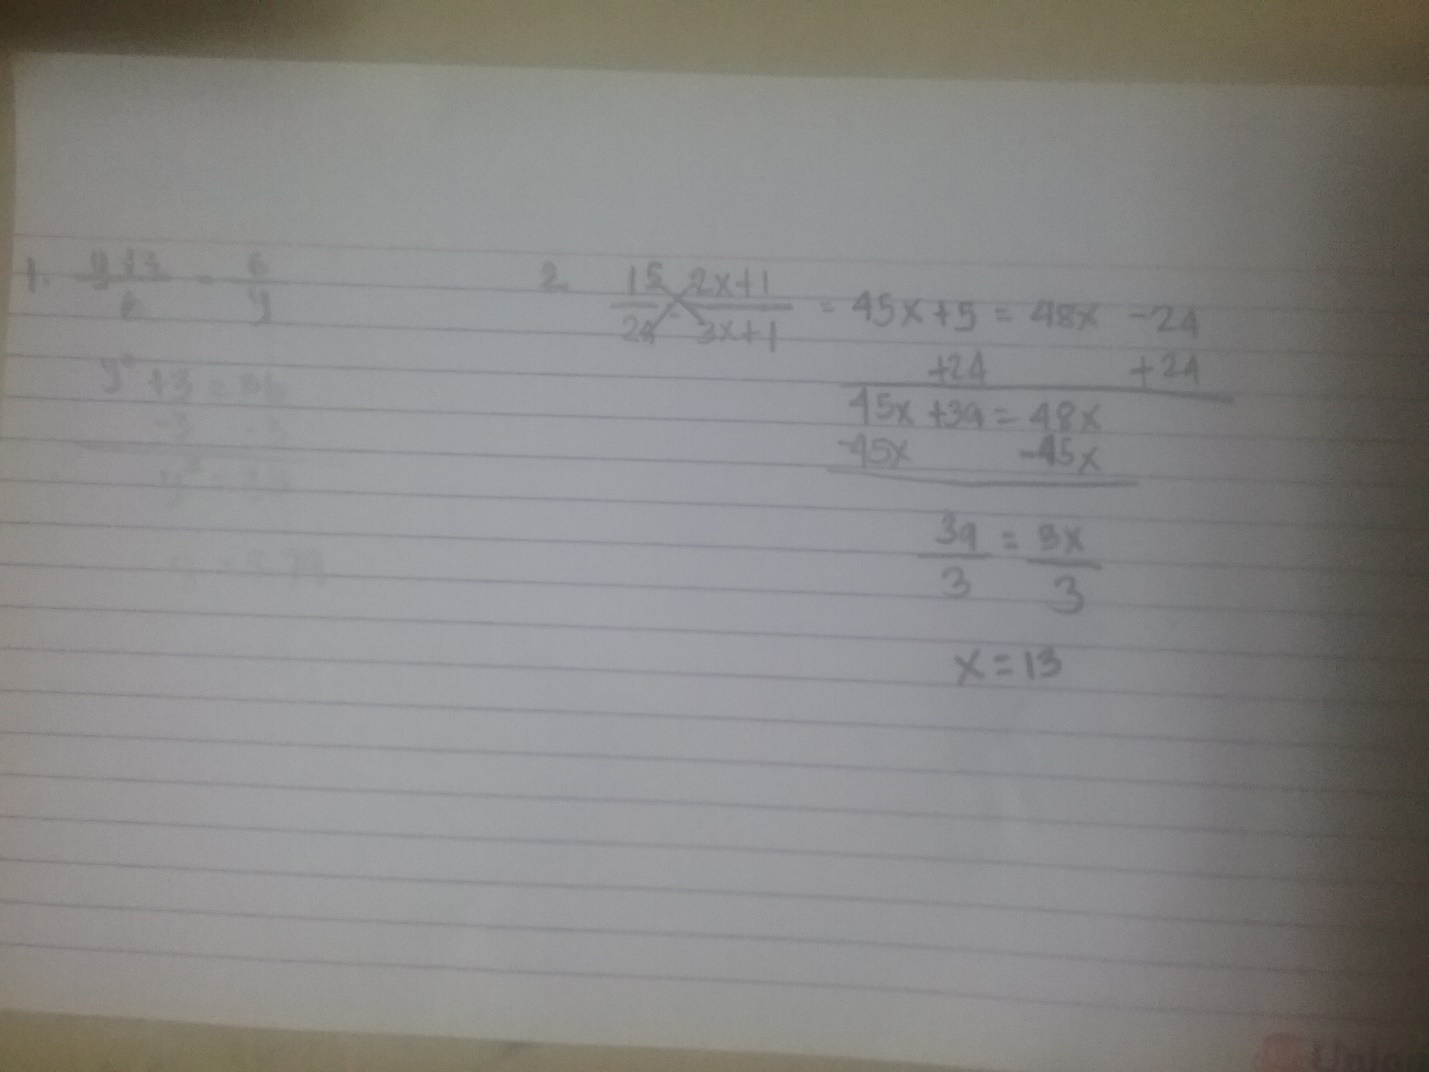 1. y+3/6 = 6/y
y² +3 = 36
-3 -3
2. 15/24 = 2x+1/3x+1 = 45x+5 = 48x -24
+24 +24
45x +39 = 48x
-45x -45x
39/3 = 3x/3
x = 13
Union